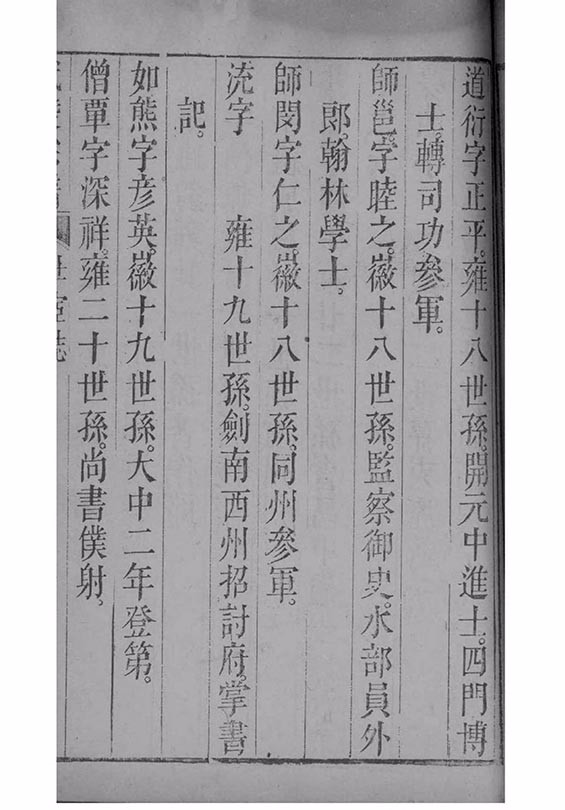 道衍字正平。雍十八世孫。開元中進士。四門博
士。轉司功參軍。
師邕。字睦之。徽十八世孫。監察御史。水部員外
郎。翰林學士。
師閔字仁之。徽十八世孫。同州參軍。
流字　　雍十九世孫。劍南西州招討府。掌書
記。
如熊字彥英。徽十九世孫。大中二年登第。
僧覃字深祥。雍二十世孫。尚書僕射。